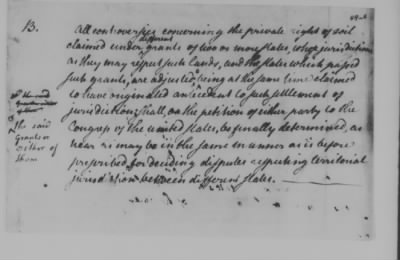 13. All controversies concerning the private right of soil
claimed under different grants of two or more states, whose jurisdiction
as they may respect such lands, and the states which passed
such grants, are adjusted, being at the same time claimed
to have originated antecedent to such settlement of
jurisdiction, shall, on the petition of either party to the
Congress of the united states, be finally determined, as
near as may be in the same manner as is before
prescribed for deciding disputes respecting territorial
jurisdiction between different states.
the said
grants or
either of
them